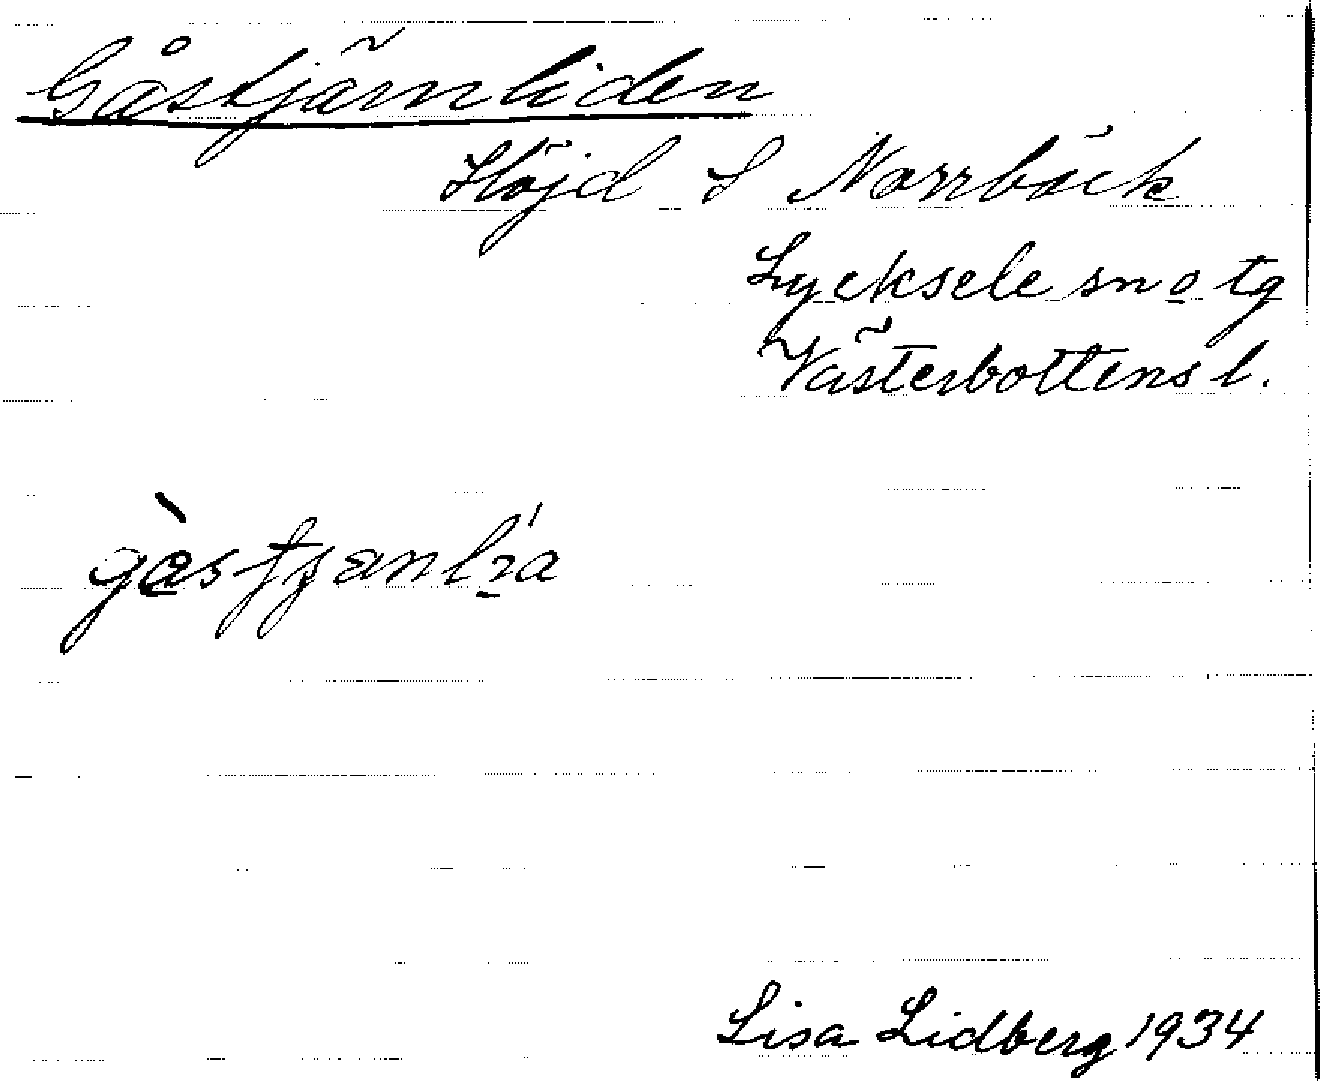 Gåstjärnliden
Höjd S Norrbäck
Lycksele sn o tg
Västerbottens l.
Lisa Lidberg 1934